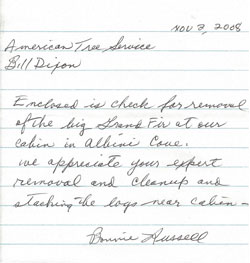 Nov 3, 2008
American Tree Service
Bill Dixon
Enclosed is check for removal
of the big Grand Fir at our
cabin in Albini Cove.
We appreciate your expert
removal and cleanup and
stacking the logs near cabin -
Bonnie Russell